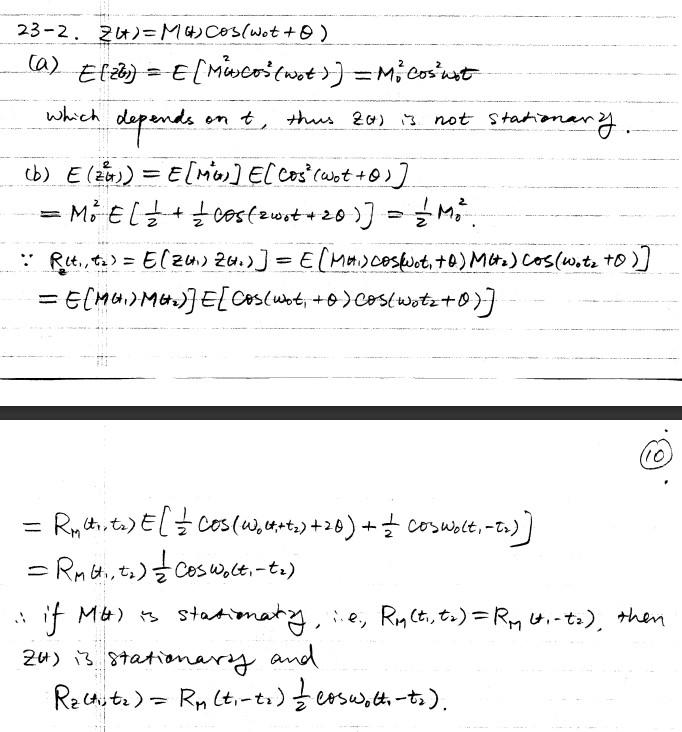 23-2. Z(t) = M(t) Cos(ω₀t + θ)
(a) E[Z²(t)] = E[M²(t) cos²(ω₀t)] = M₀² cos² ω₀t
which depends on t, thus Z(t) is not stationary.
(b) E(Z²(t)) = E[M²(t)] E[Cos²(ω₀t + θ)]
= M₀² E[½ + ½ cos(2ω₀t + 2θ)] = ½ M₀².
∵ R_Z(t₁, t₂) = E[Z(t₁) Z(t₂)] = E[M(t₁) cos(ω₀t₁ + θ) M(t₂) cos(ω₀t₂ + θ)]
= E[M(t₁) M(t₂)] E[Cos(ω₀t₁ + θ) cos(ω₀t₂ + θ)]
10
= R_M(t₁, t₂) E[½ cos(ω₀(t₁+t₂) + 2θ) + ½ cos ω₀(t₁-t₂)]
= R_M(t₁, t₂) ½ cos ω₀(t₁-t₂)
∴ if M(t) is stationary, i.e., R_M(t₁, t₂) = R_M(t₁-t₂), then
Z(t) is stationary and
R_Z(t₁, t₂) = R_M(t₁-t₂) ½ cos ω₀(t₁-t₂).